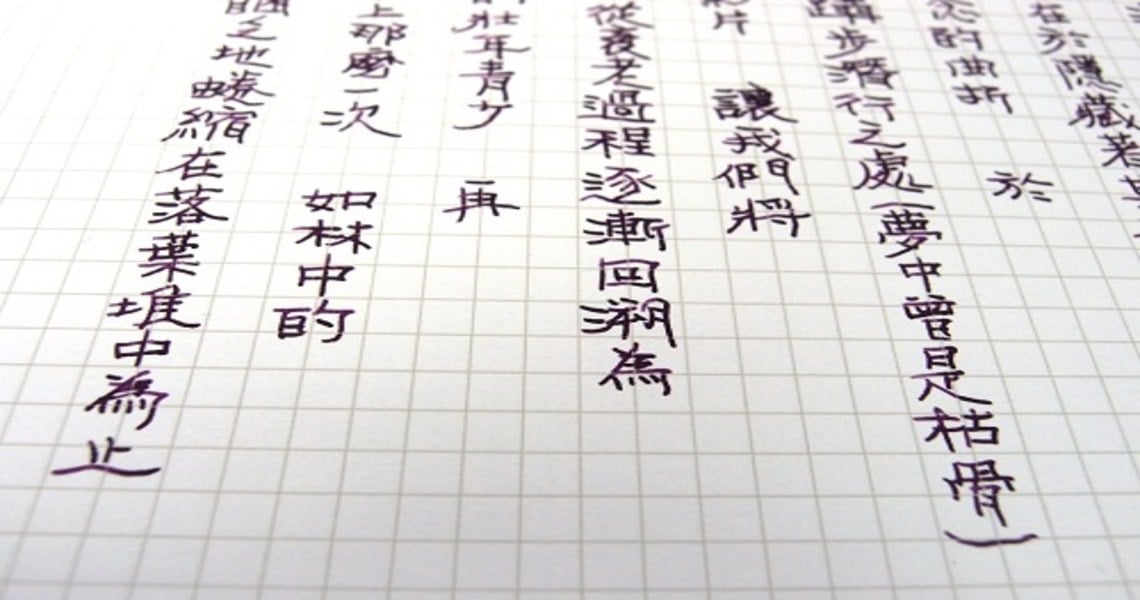 在於隱藏著
的曲折　於
躡步潛行之處（夢中曾是枯骨）
片　讓我們將
從衰老過程逐漸回溯為
壯年青少　再
上那麼一次　如林中的
之地蜷縮在落葉堆中為止